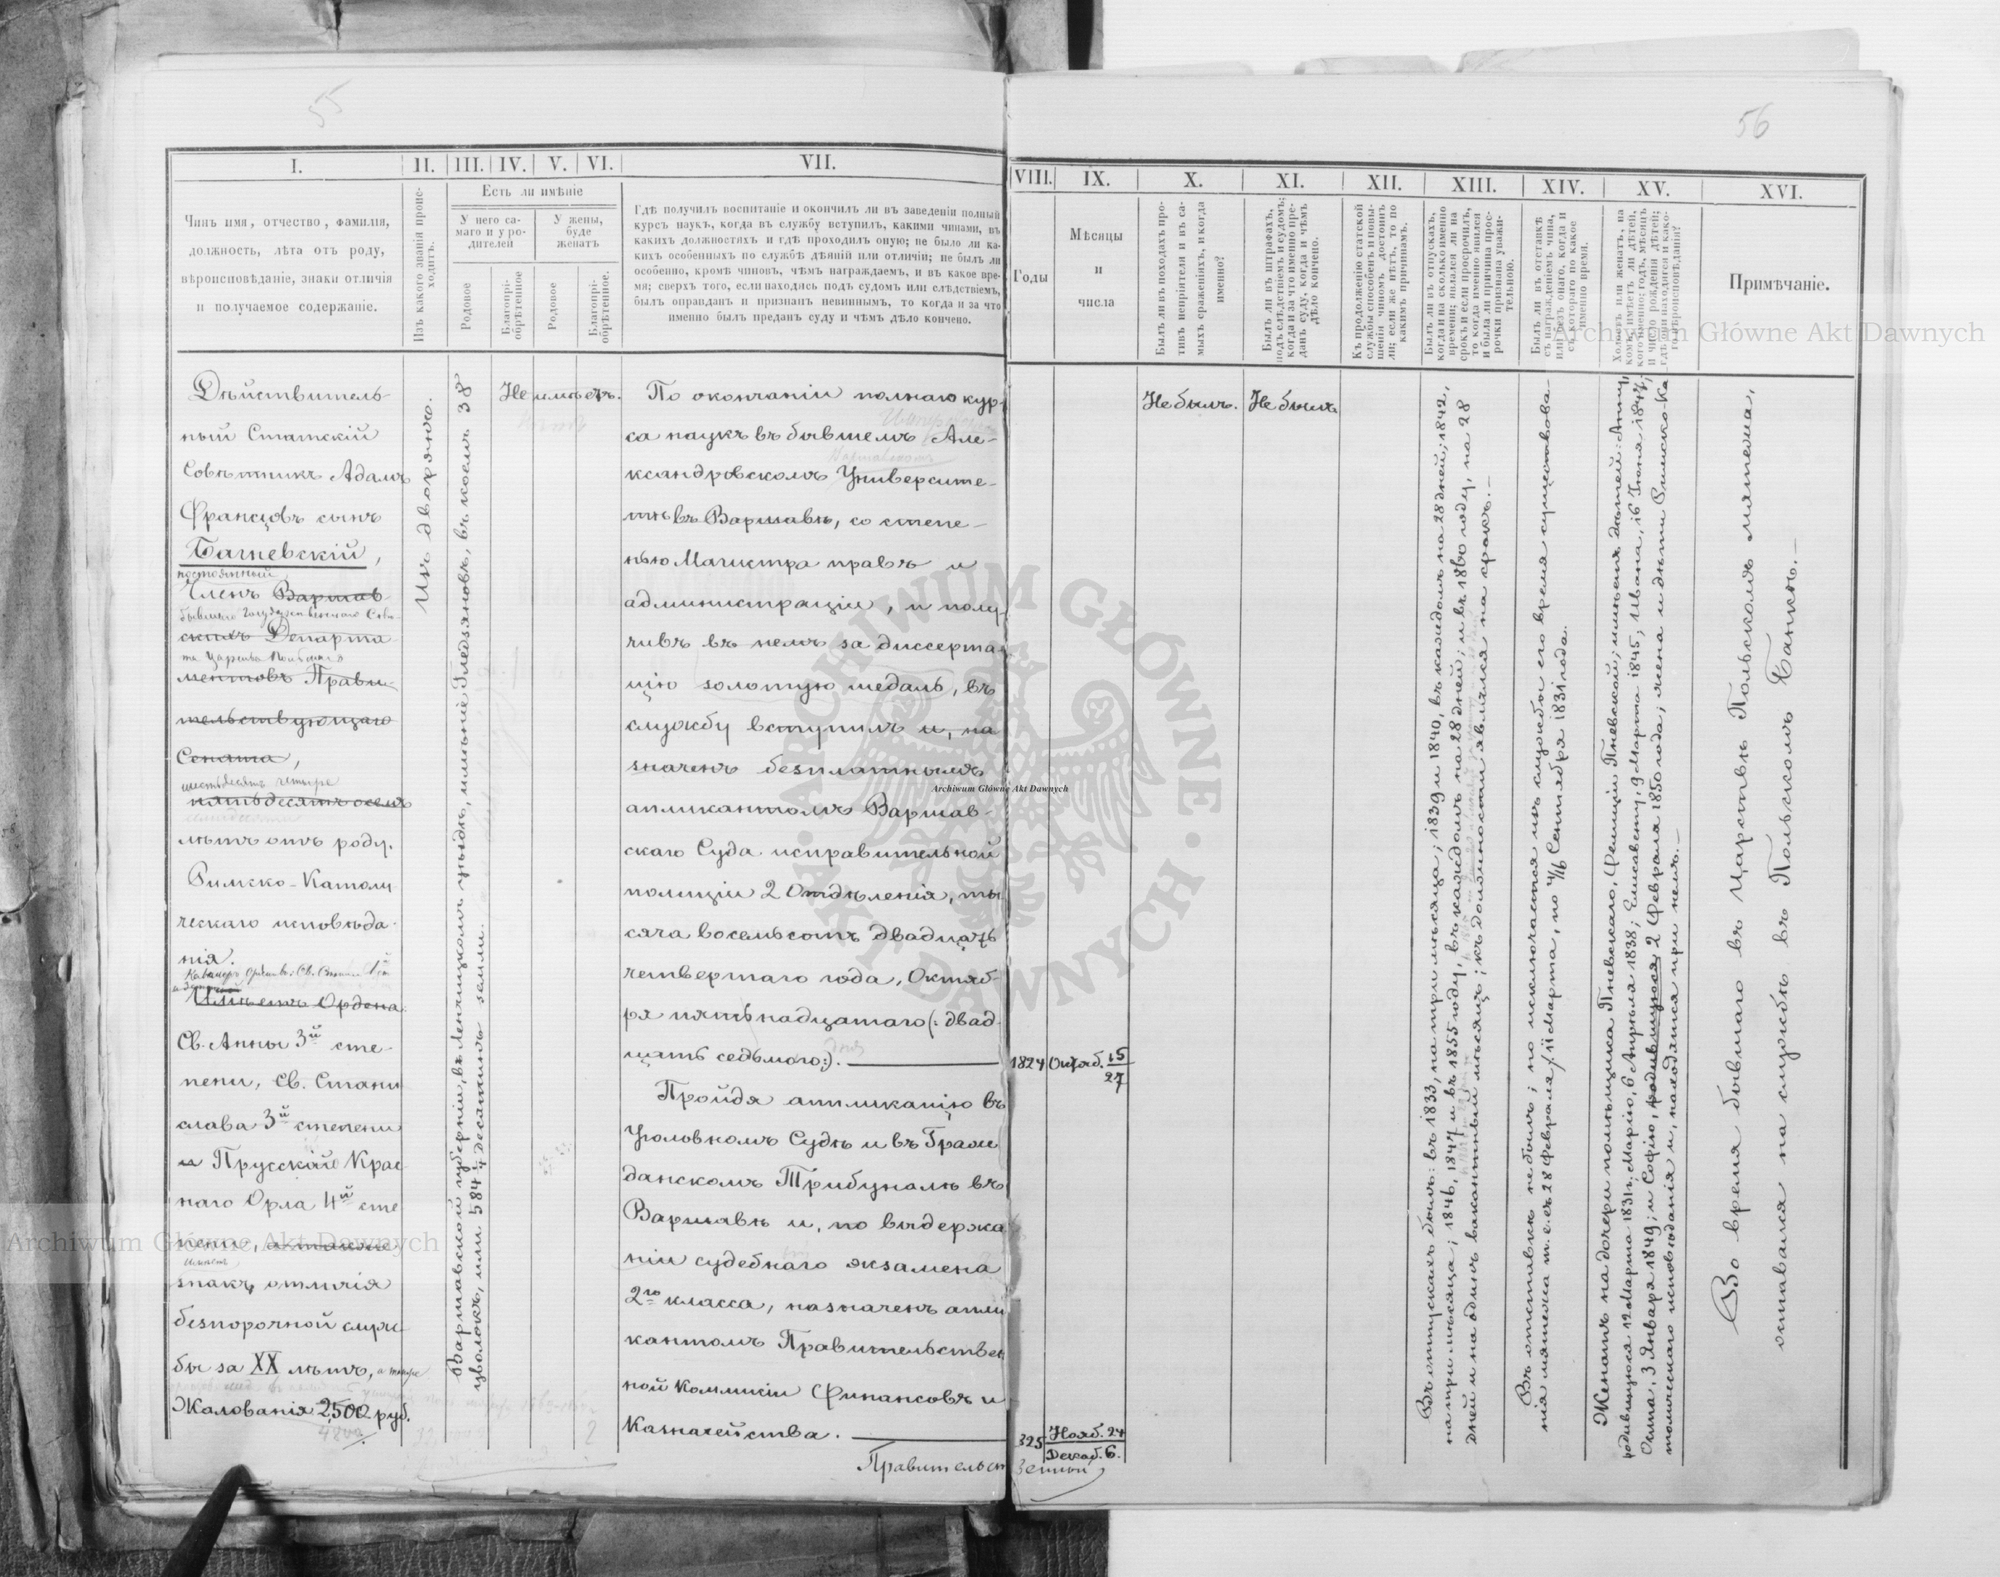 55
I.
II.
III.
IV.
V.
VI.
VII.
Чинъ имя, отчество, фамилія,
должность, лѣта отъ роду,
вѣроисповѣданіе, знаки отличія
и получаемое содержаніе.
Изъ какого званія проис-
ходитъ.
Есть ли имѣніе
У него са-
маго и у ро-
дителей
У жены,
буде
женатъ
Родовое
Благопрі-
обрѣтенное
Родовое
Благопрі-
обрѣтенное.
Гдѣ получилъ воспитаніе и окончилъ ли въ заведеніи полный
курсъ наукъ, когда въ службу вступилъ, какими чинами, въ
какихъ должностяхъ и гдѣ проходилъ оную; не было ли ка-
кихъ особенныхъ по службѣ дѣяній или отличій; не былъ ли
особенно, кромѣ чиновъ, чѣмъ награждаемъ, и въ какое вре-
мя; сверхъ того, если находясь подъ судомъ или слѣдствіемъ,
былъ оправданъ и признанъ невиннымъ, то когда и за что
именно былъ преданъ суду и чѣмъ дѣло кончено.
Дѣйствитель-
ный Статскій
Совѣтникъ Адамъ
Францовъ сынъ
Багневскій,
постоянный
Членъ Варшав-
бывшаго Государственнаго Совѣ-
скихъ Департа-
та Царства Польскаго
ментовъ Прави-
тельствующаго
Сената,
шестьдесятъ четыре
пятьдесятъ осемь
лѣтъ отъ роду.
Римско-Католи
ческаго исповѣда-
нія.
Имѣетъ Ордена
Св. Анны 3й сте-
пени, Св. Стани
слава 3й степени
и Прусскій Крас
наго Орла 4й сте
пени, а также
имѣетъ
знакъ отличія
безпорочной служ
бы за XX лѣтъ,
Жалованія 2500 руб.
4800
Изъ дворянъ.
Варшавской губерніи, въ Ленчицкомъ уѣздѣ, имѣніе Гледзяновъ, въ коемъ 38
цволокъ, или 584 1/4 десятинъ земли.
Не имѣетъ.
По окончаніи полнаго кур-
са наукъ въ бывшемъ Але-
ксандровскомъ Университе-
тѣ въ Варшавѣ, со степе-
нью Магистра правъ и
администраціи, и полу-
чивъ въ немъ за диссерта-
цію золотую медаль, въ
службу вступилъ и, на
значенъ безплатнымъ
апликантомъ Варшав-
скаго Суда исправительной
полиціи 2 Отдѣленія, ты
сяча восемьсотъ двадцать
четвертаго года, Октяб-
ря пятьнадцатаго (: двад-
цать седьмого:).
Пройдя аппликацію въ
Уголовномъ Судѣ и въ Граж
данскомъ Трибуналѣ въ
Варшавѣ и, по выдержа
ніи судебнаго экзамена
2го класса, назначенъ апли
кантомъ Правительствен
ной Коммисіи Финансовъ и
Казначейства.
Правительст
56
VIII.
IX.
X.
XI.
XII.
XIII.
XIV.
XV.
XVI.
Годы
Мѣсяцы
и
числа
Былъ ли въ походахъ про-
тивъ непріятеля и въ са-
мыхъ сраженіяхъ, и когда
именно?
Былъ ли въ штрафахъ,
подъ слѣдствіемъ и судомъ;
когда и за что именно пре-
данъ суду, когда и чѣмъ
дѣло кончено.
Къ продолженію статской
службы способенъ и повы-
шенія чиномъ достоинъ
ли; если же нѣтъ, то по
какимъ причинамъ.
Былъ ли въ отпускахъ,
когда и на сколько именно
времени; являлся ли на
срокъ и если просрочилъ,
то когда именно явился
и была ли причина прос-
рочки признана уважи-
тельною.
Былъ ли въ отставкѣ
съ награжденіемъ чина,
или безъ онаго, когда и
съ котораго по какое
именно время.
Холостъ или женатъ, на
комъ, имѣетъ ли дѣтей,
кого именно; годъ, мѣсяцъ
и число рожденія дѣтей;
гдѣ они находятся и како-
го вѣроисповѣданія?
Примѣчаніе.
1824
Октяб. 15
27
825
Нояб. 24
Декаб. 6.
венной
Не былъ.
Не былъ.
Въ отпускахъ былъ: въ 1833, на три мѣсяца; 1839 и 1840, въ каждомъ на 28 дней; 1842,
на три мѣсяца; 1846, 1847 и въ 1855 году, въ каждомъ на 28 дней; и въ 1860 году, на 28
дней и на одинъ вакантный мѣсяцъ; къ должности явился на срокъ.—
Въ отставкѣ не былъ; но исключается изъ службы его время существова-
нія мятежа т. е. съ 28 Февраля/11 Марта, по 4/16 Сентября 1831 года.
Женатъ на дочери помѣщика Пневскаго, Фелиціи Пневской; имѣетъ дѣтей: Анну,
родившуюся 12 Марта 1831 г., Марію, 6 Апрѣля 1838; Елисавету, 9 Марта 1845; Ивана, 16 Іюня 1847,
Осипа, 3 Января 1849; и Софію, родившуюся 2 Февраля 1850 года; жена и дѣти Римско-Ка
толическаго исповѣданія и, находятся при немъ.—
Во время бывшаго въ Царствѣ Польскомъ мятежа,
оставался на службѣ въ Польскомъ Банкѣ.—
Archiwum Główne Akt Dawnych
Archiwum Główne Akt Dawnych
Archiwum Główne Akt Dawnych
ARCHIWUM GŁÓWNE · AKT DAWNYCH ·